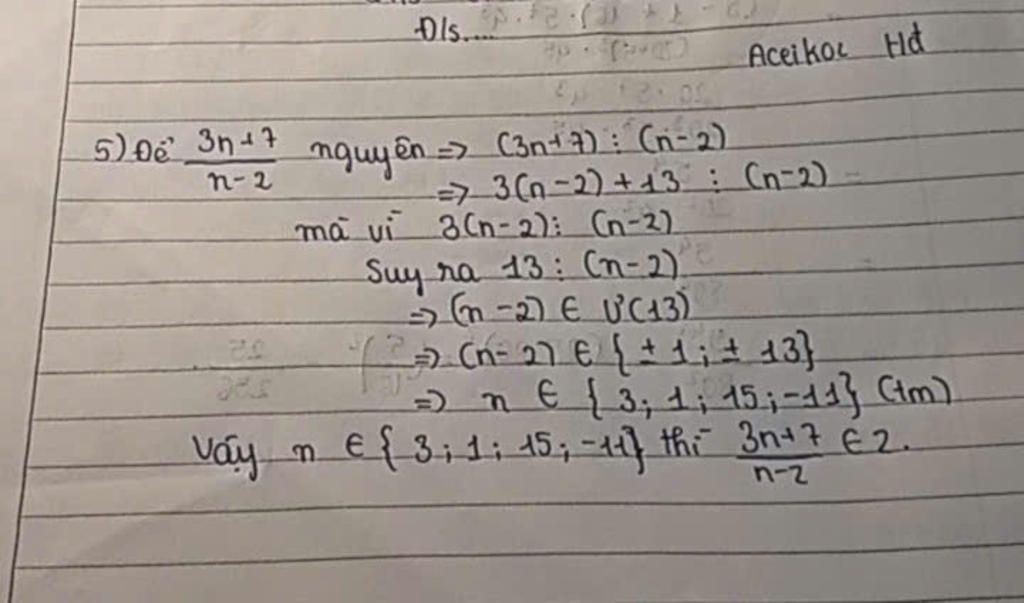 Đ/s....
Aceikoc Hđ
5) Để \frac{3n+7}{n-2} nguyên => (3n+7) ⋮ (n-2)
=> 3(n-2) + 13 ⋮ (n-2)
mà vì 3(n-2) ⋮ (n-2)
Suy ra 13 ⋮ (n-2)
=> (n-2) ∈ Ư(13)
=> (n-2) ∈ {±1; ±13}
=> n ∈ {3; 1; 15; -11} (tm)
Vậy n ∈ {3; 1; 15; -11} thì \frac{3n+7}{n-2} ∈ Z.